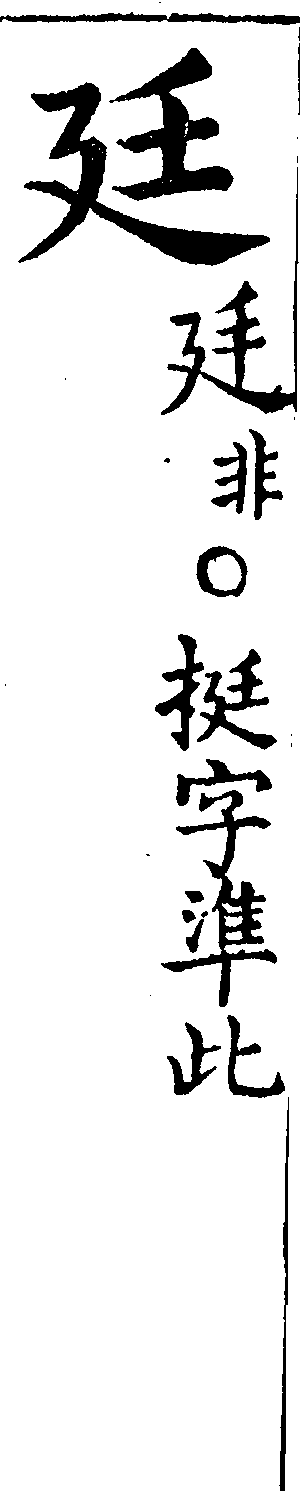 廷
廷非○挺字準此